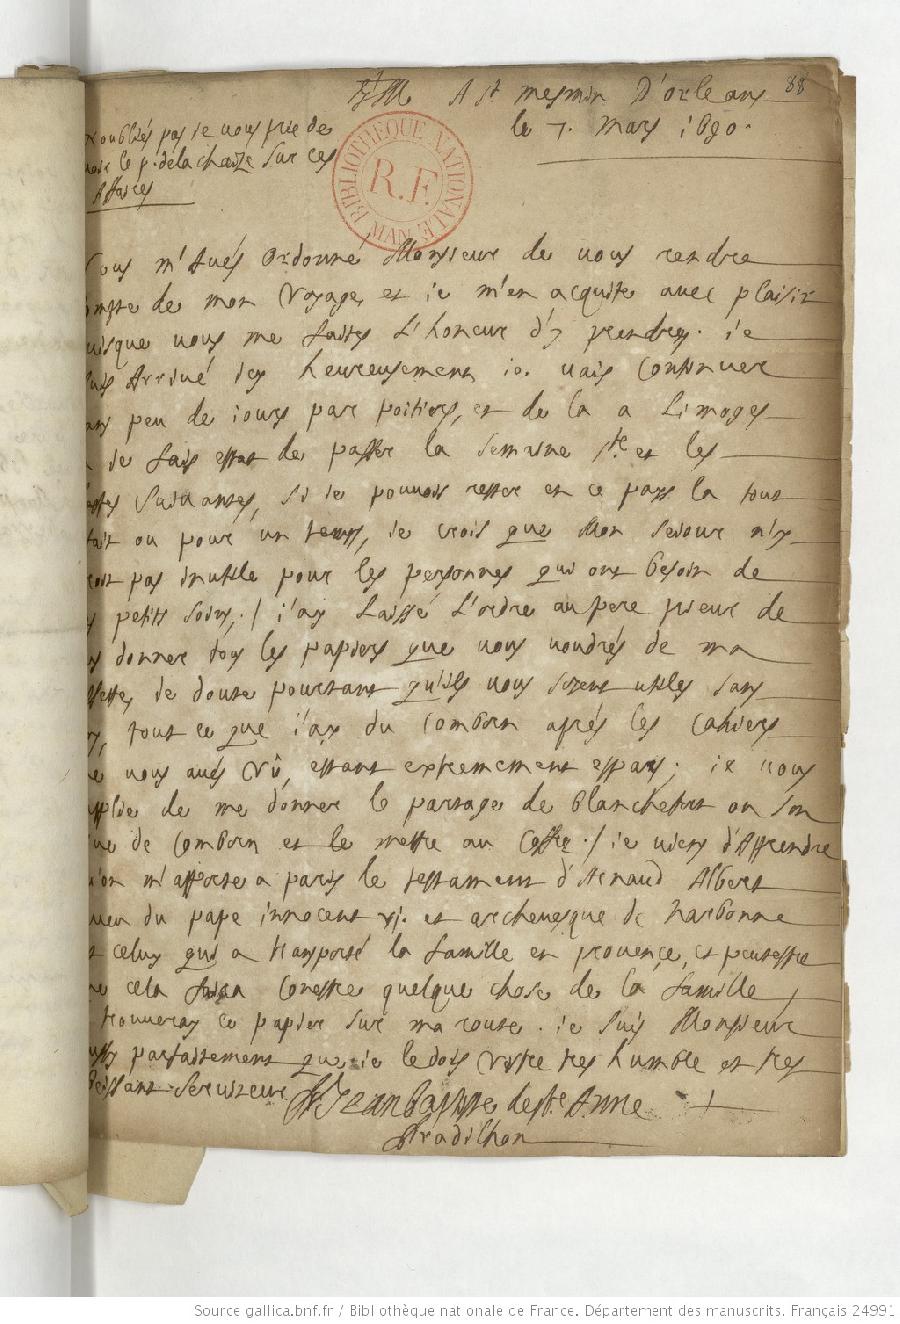 A St mesmin D'orleans 88
le 7. Mars 1690.
n'oubliés pas ie vous prie de
voir le p. de la chaize sur ces
Affaires
BIBLIOTHÈQUE NATIONALE
R.F.
MAN
Vous m'Aués Ordonné Monsieur de vous rendre
ompte de mon Voyage, et ie m'en acquite avec plaisir
uisque vous me faites L'honeur d'y prendre. ie
suis Arriué icy heureusement, io. vais Continuer
ans peu de iours par poitiers, et de la a Limoges
ie fais estat de passer la Semaine Ste et les
festes Suiuantes, Si ie pouuois rester en ce pays la tout
fait ou pour un temps, ie crois que Mon Seiour n'y
roit pas inutile pour les personnes qui ont besoin de
s petits soins ./ i'ay Laissé L'ordre au pere prieur de
us donner tous les papiers que vous voudrés de ma
ssette, ie doute pourtant qu'ils vous soient utiles sans
y, tout ce que i'ay du Comborn aprés les Cahiers
ue vous aués vû, estant extremement espars; ie vous
upplie de me donner le partage de blanchefort ou son
ue de Comborn et le mettre au Coffre ./ ie viens d'Apprendre
u'on m'apporte a paris le testament d'Arnaud Albert
neueu du pape innocent vj. et archeuesque de Narbonne
st celuy qui a transporté la famille en prouence, et peutestre
ue cela fera Conestre quelque chose de la famille,
trouueray ce papier sur ma route. ie Suis Monsieur
ussy parfaitement que ie le dois Vostre tres humble et tres
beissant Seruiteur f Jean baptiste de Ste Anne
Pradilhon
Source gallica.bnf.fr / Bibliothèque nationale de France. Département des manuscrits. Français 24991